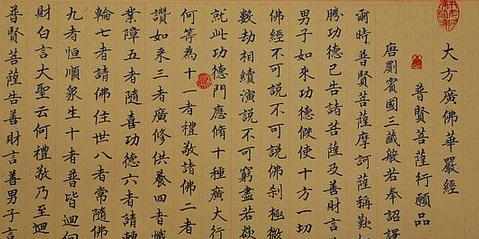 大方廣佛華嚴經
普賢菩薩行願品
唐罽賓國三藏般若奉詔譯
爾時普賢菩薩摩訶薩稱歎
勝功德已告諸菩薩及善財言
男子如來功德假使十方一切
佛經不可說不可說佛剎極微
數劫相續演說不可窮盡若欲
就此功德門應脩十種廣大行
何等為十一者禮敬諸佛二者
讚如來三者廣修供養四者懺
業障五者隨喜功德六者請轉
輪七者請佛住世八者常隨佛
九者恒順眾生十者普皆迴
財白言大聖云何禮敬乃至迴
普賢菩薩告善財言善男子言